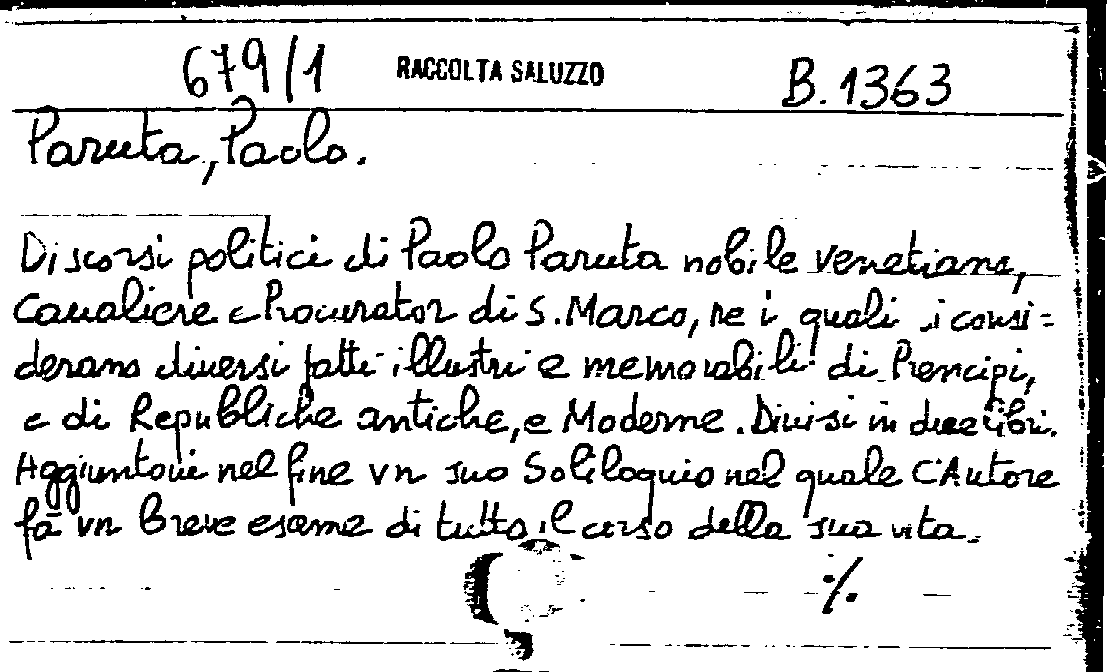 679/1 RACCOLTA SALUZZO B. 1363
Paruta, Paolo.
Discorsi politici di Paolo Paruta nobile venetiano,
Caualiere e Procurator di S. Marco, ne i quali si consi=
derano diuersi fatti illustri e memorabili di Prencipi,
e di Republiche antiche, e Moderne. Diuisi in due libri.
Aggiuntoui nel fine vn suo Soliloquio nel quale l'Autore
fà vn breve esame di tutto il corso della sua vita.
./.